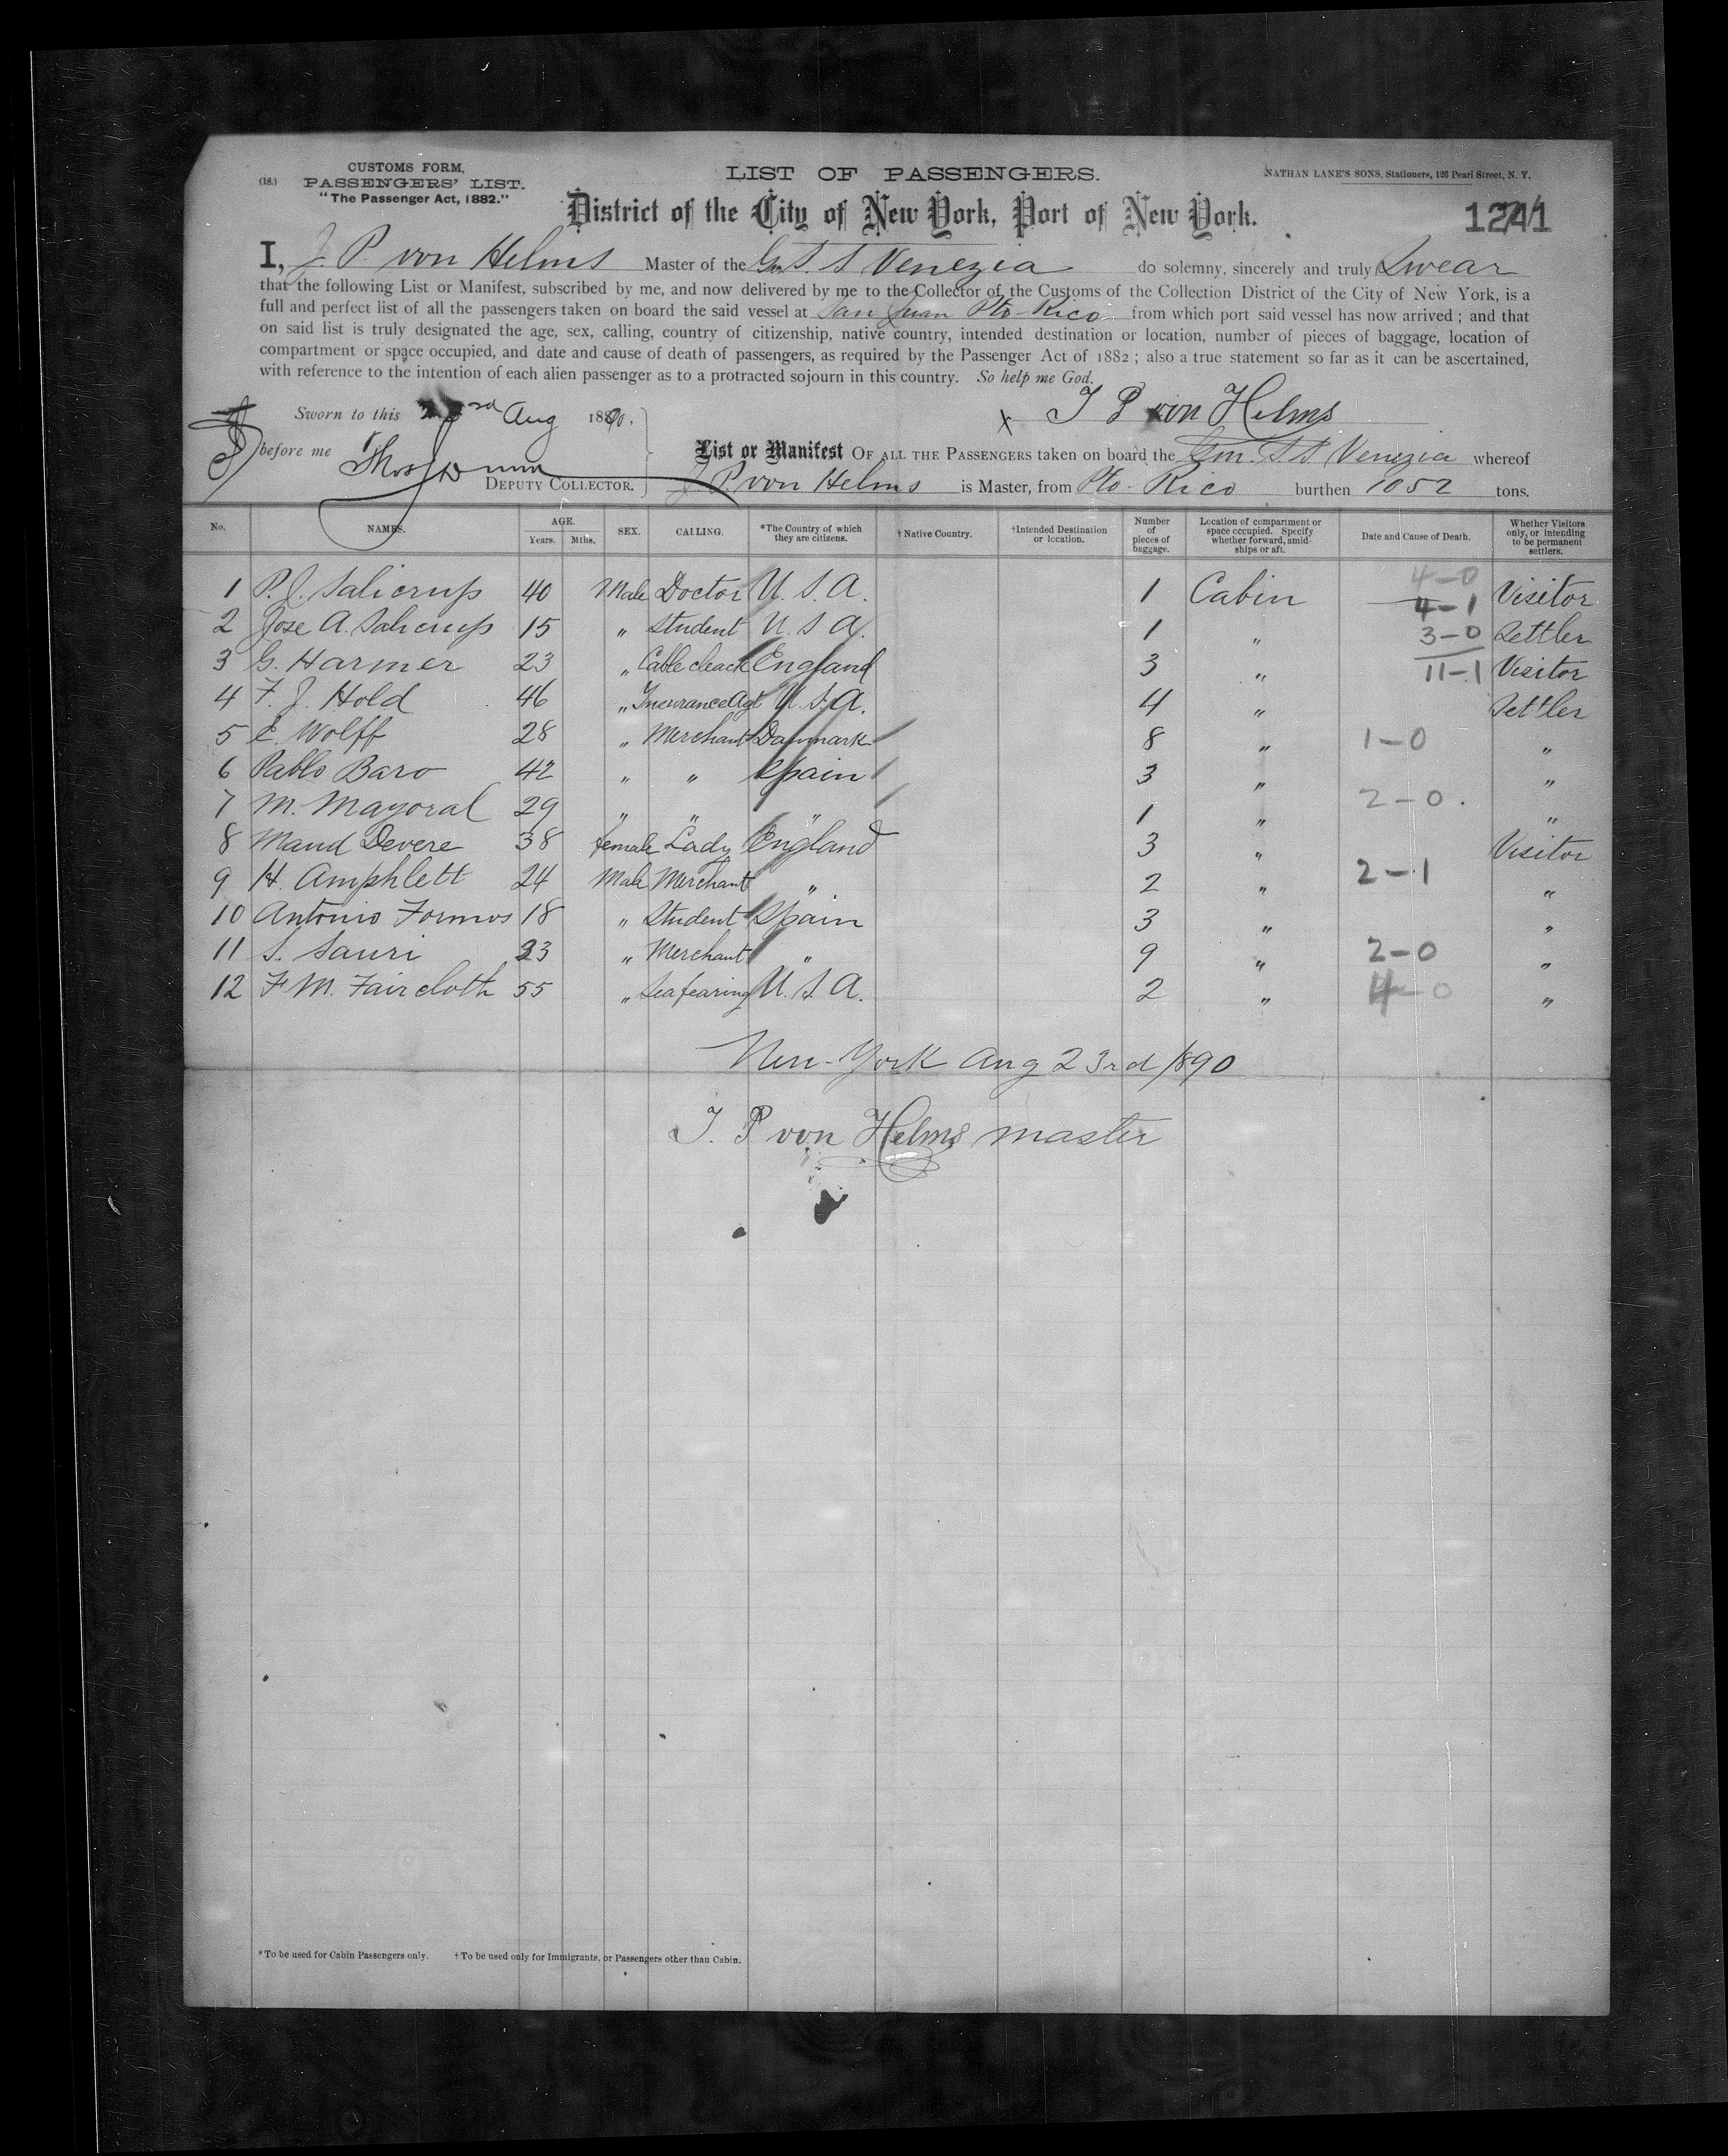 (18.)
CUSTOMS FORM,
PASSENGERS' LIST.
"The Passenger Act, 1882."
LIST OF PASSENGERS.
NATHAN LANE'S SONS, Stationers, 126 Pearl Street, N. Y.
District of the City of New York, Port of New York.
1241
I, J. P. von Helms Master of the Gm S. S Venezia do solemny, sincerely and truly Swear
that the following List or Manifest, subscribed by me, and now delivered by me to the Collector of the Customs of the Collection District of the City of New York, is a
full and perfect list of all the passengers taken on board the said vessel at San Juan Pto-Rico from which port said vessel has now arrived; and that
on said list is truly designated the age, sex, calling, country of citizenship, native country, intended destination or location, number of pieces of baggage, location of
compartment or space occupied, and date and cause of death of passengers, as required by the Passenger Act of 1882; also a true statement so far as it can be ascertained,
with reference to the intention of each alien passenger as to a protracted sojourn in this country. So help me God.
Sworn to this 23rd Aug 1890.
x J P von Helms
before me Thos Dunn
DEPUTY COLLECTOR.
List or Manifest OF ALL THE PASSENGERS taken on board the Gm. S. S Venezia whereof
J. P. von Helms is Master, from Pto-Rico burthen 1052 tons.
No. NAMES. AGE. Years. Mths. SEX. CALLING. *The Country of which they are citizens. †Native Country. †Intended Destination or location. Number of pieces of baggage. Location of compartment or space occupied. Specify whether forward, amidships or aft. Date and Cause of Death. Whether Visitors only, or intending to be permanent settlers.
1 P. J. Salicrup 40 Male Doctor U. S. A. 1 Cabin 4-0 4-1 Visitor
2 Jose A. Salicrup 15 " Student U. S A. 1 " 3-0 Settler
3 G. Harmer 23 " Cable cleack England 3 " 11-1 Visitor
4 F. J. Hold 46 " Insurance Agt U. S. A. 4 " Settler
5 E. Wolff 28 " Merchant Danmark 8 " 1-0 "
6 Pablo Baro 42 " " Spain 3 " "
7 M. Mayoral 29 " " " 1 " 2-0. "
8 Maud Devere 38 female Lady England 3 " Visitor
9 H. Amphlett 24 Male Merchant " 2 " 2-1 "
10 Antonio Formos 18 " Student Spain 3 " "
11 S. Sauri 23 " Merchant " 9 " 2-0 "
12 F M. Faircloth 55 " Seafearing U. S. A. 2 " 4-0 "
New-York Aug 23rd 1890
J. P von Helms master
*To be used for Cabin Passengers only. †To be used only for Immigrants, or Passengers other than Cabin.